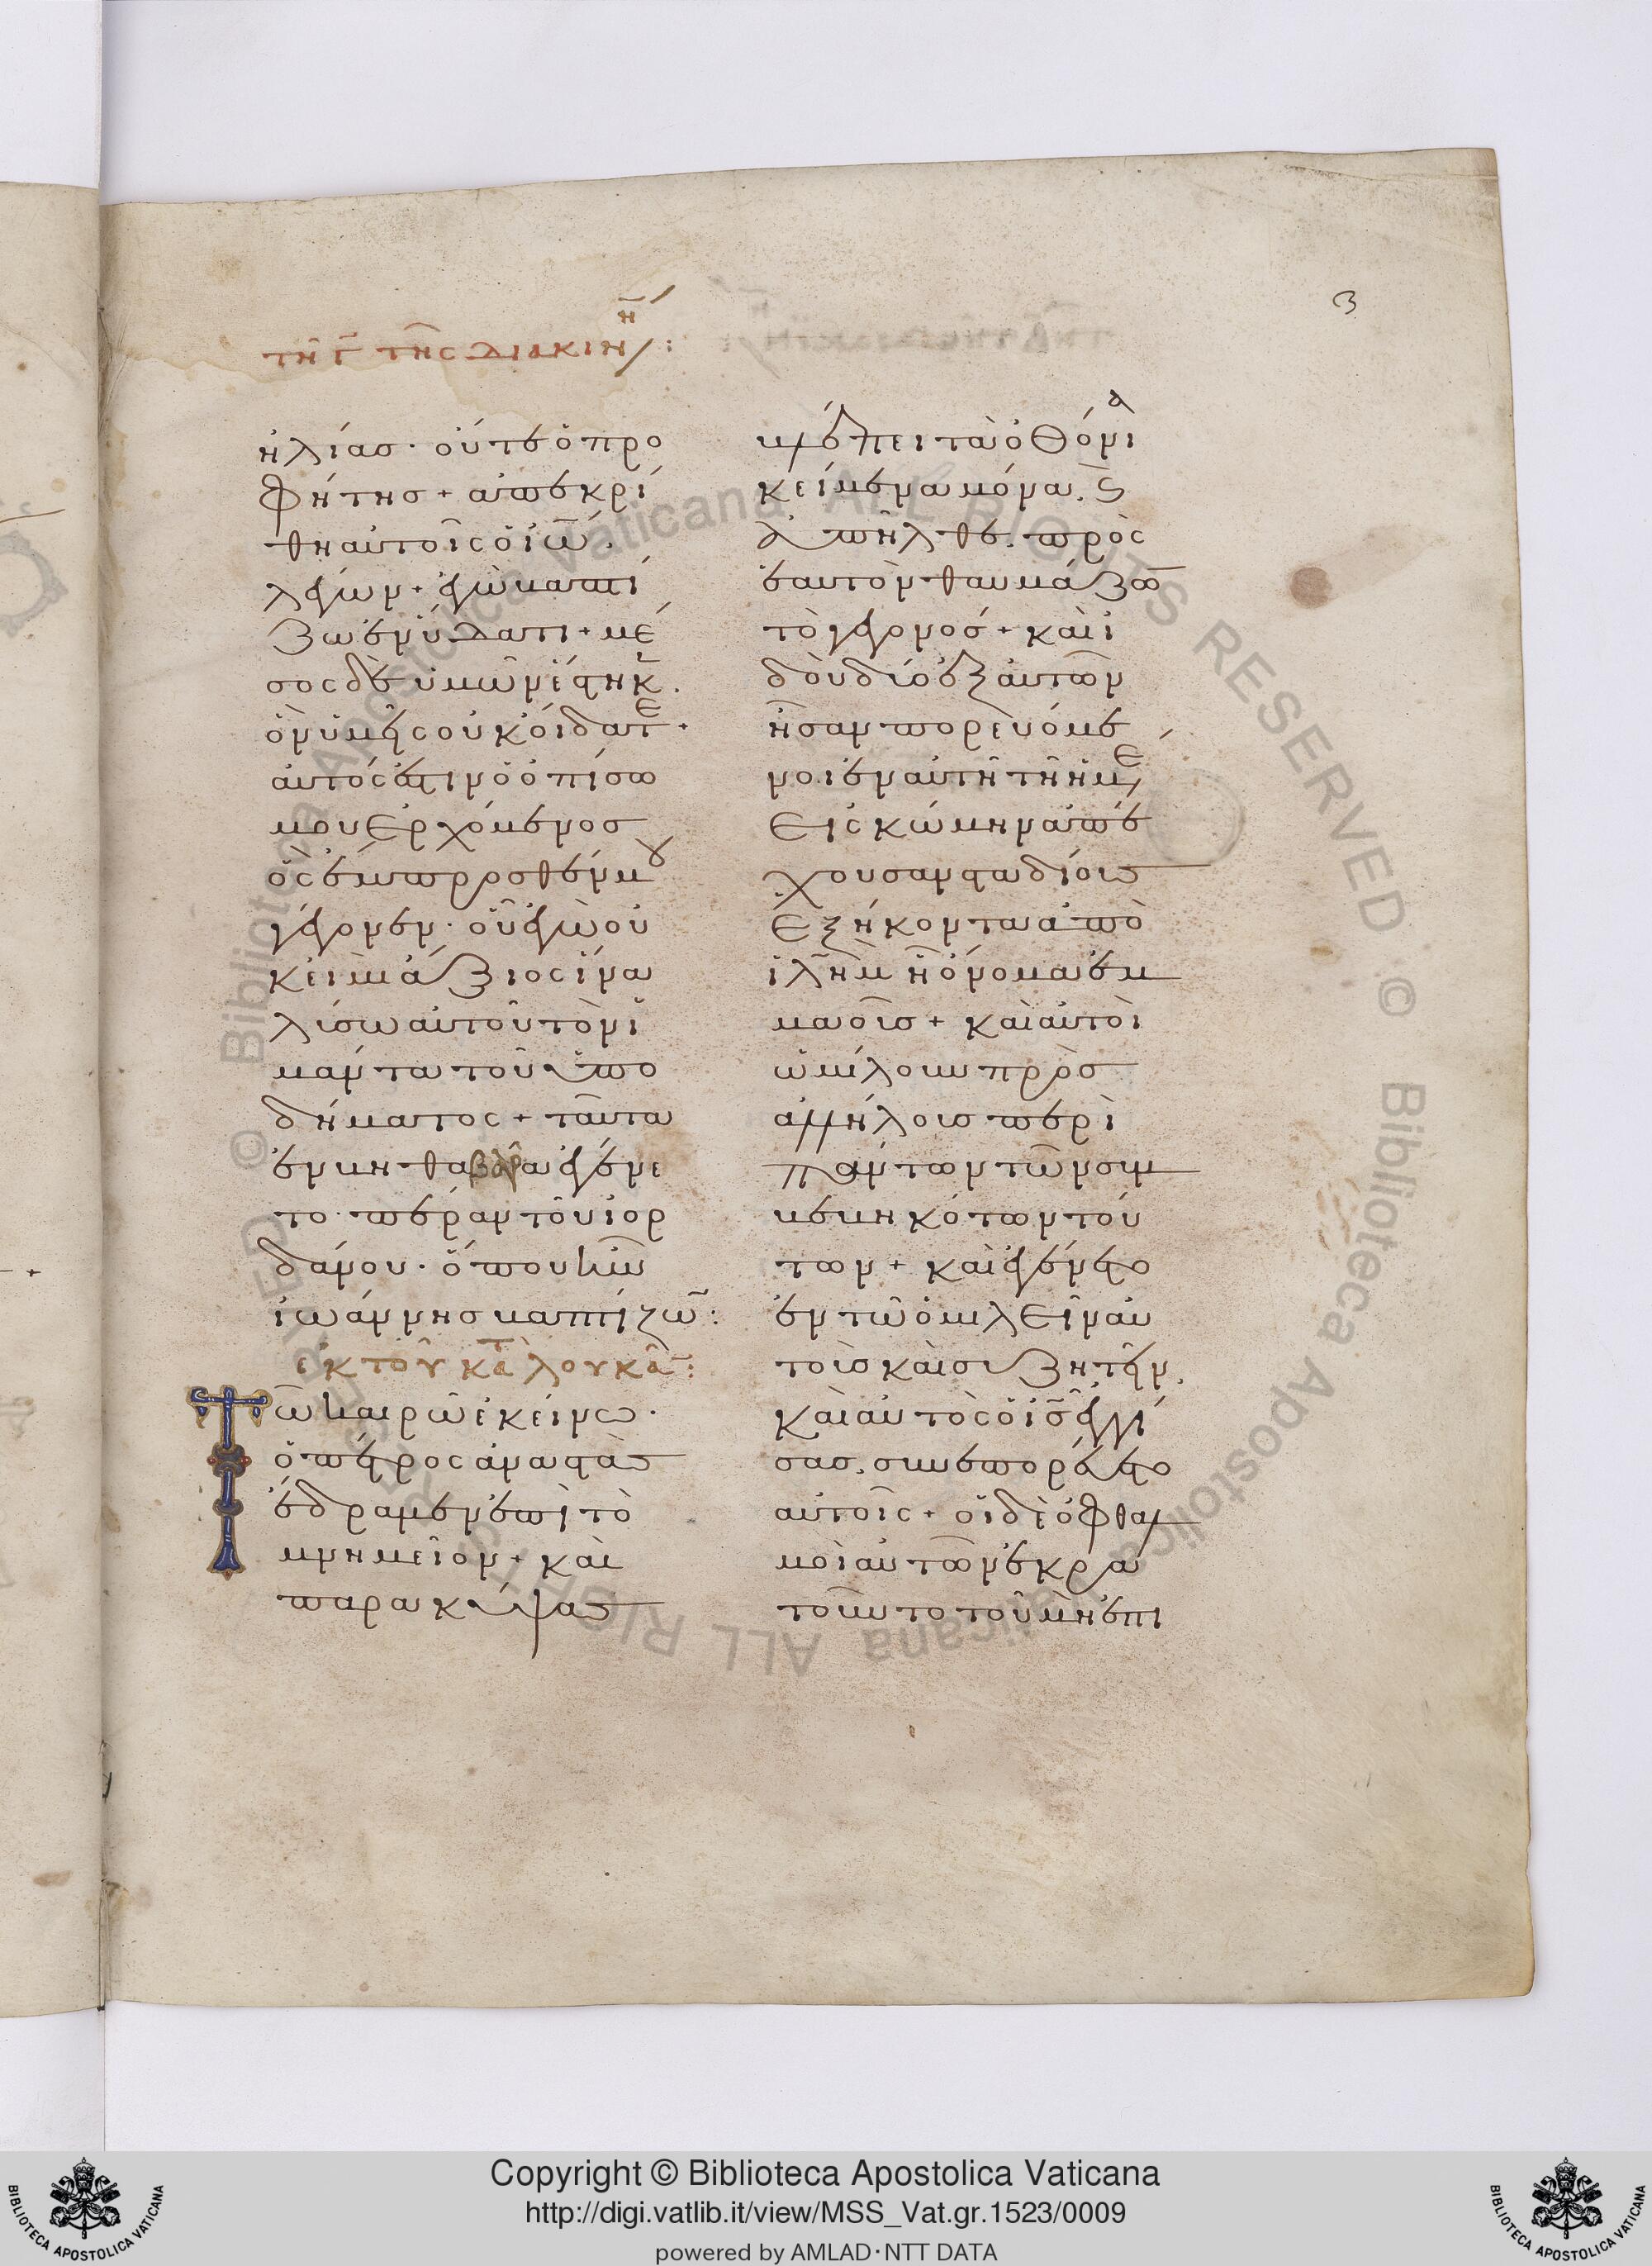 3
τῆ Γ τῆς διακινη̅/ :
ἠλίας · οὔτε ὁ προ
φήτης + ἀπεκρί
θη αὐτοῖς ὁ ἰω̅ .
λέγων + ἐγὼ βαπτί
ζω ἐν ὕδατι + μέ
σος δὲ ὑμῶν ἕστηκ̅ .
ὃν ὑμεῖς οὐκ οἴδατε +
αὐτός ἐστιν ὁ ὀπίσω
μου ἐρχόμενος
ὃς ἔμπροσθέν μου
γέγονεν · οὗ ἐγὼ οὐ
κ εἰμὶ ἄξιος ἵνα
λύσω αὐτοῦ τὸν ἱ
μάντα τοῦ ὑπο
δήματος + ταῦτα
ἐν βηθαβαρᾶ ἐγένε
το · πέραν τοῦ ἰορ
δάνου · ὅπου ἦν
ἰωάννης βαπτίζω̅ :
ἐκ τοῦ κατὰ λουκᾶ :
Τῶ καιρῶ ἐκείνω ·
ὁ πέτρος ἀναστὰς
ἔδραμεν ἐπὶ τὸ
μνημεῖον + καὶ
παρακύψας
βλέπει τὰ ὀθόνια
κείμενα μόνα . ϛ
ἀπῆλθε . πρὸς
ἑαυτὸν θαυμάζω̅
τὸ γεγονός + καὶ ἰ
δοὺ δύο ἐξ αὐτῶν
ἦσαν πορευόμε
νοι ἐν αὐτῆ τῆ ἡμε/
εἰς κώμην ἀπέ
χουσαν σταδίους
ἑξήκοντα ἀπὸ
ἰλ̅η̅μ ἧ ὄνομα ἐμ
μαοῦς + καὶ αὐτοὶ
ὡμίλουν πρὸς
ἀλλήλους περὶ
πάντων τῶν συμ
βεβηκότων τού
των + καὶ ἐγένετο
ἐν τῶ ὁμιλεῖν αὐ
τοὺς καὶ συζητεῖν .
καὶ αὐτὸς ὁ ι̅ς̅ ἐγγί
σας . συνεπορεύετο
αὐτοῖς + οἱ δὲ ὀφθαλ
μοὶ αὐτῶν ἐκρα
τοῦντο τοῦ μὴ ἐπι
Copyright © Biblioteca Apostolica Vaticana
http://digi.vatlib.it/view/MSS_Vat.gr.1523/0009
powered by AMLAD·NTT DATA